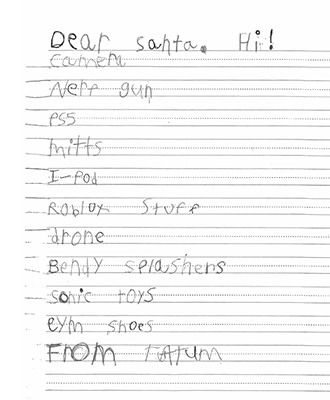 Dear santa. Hi!
camera
Nerf gun
PS5
mitts
I-pod
Roblox Stuff
drone
Bendy splashers
sonic toys
eym shoes
From Tatum